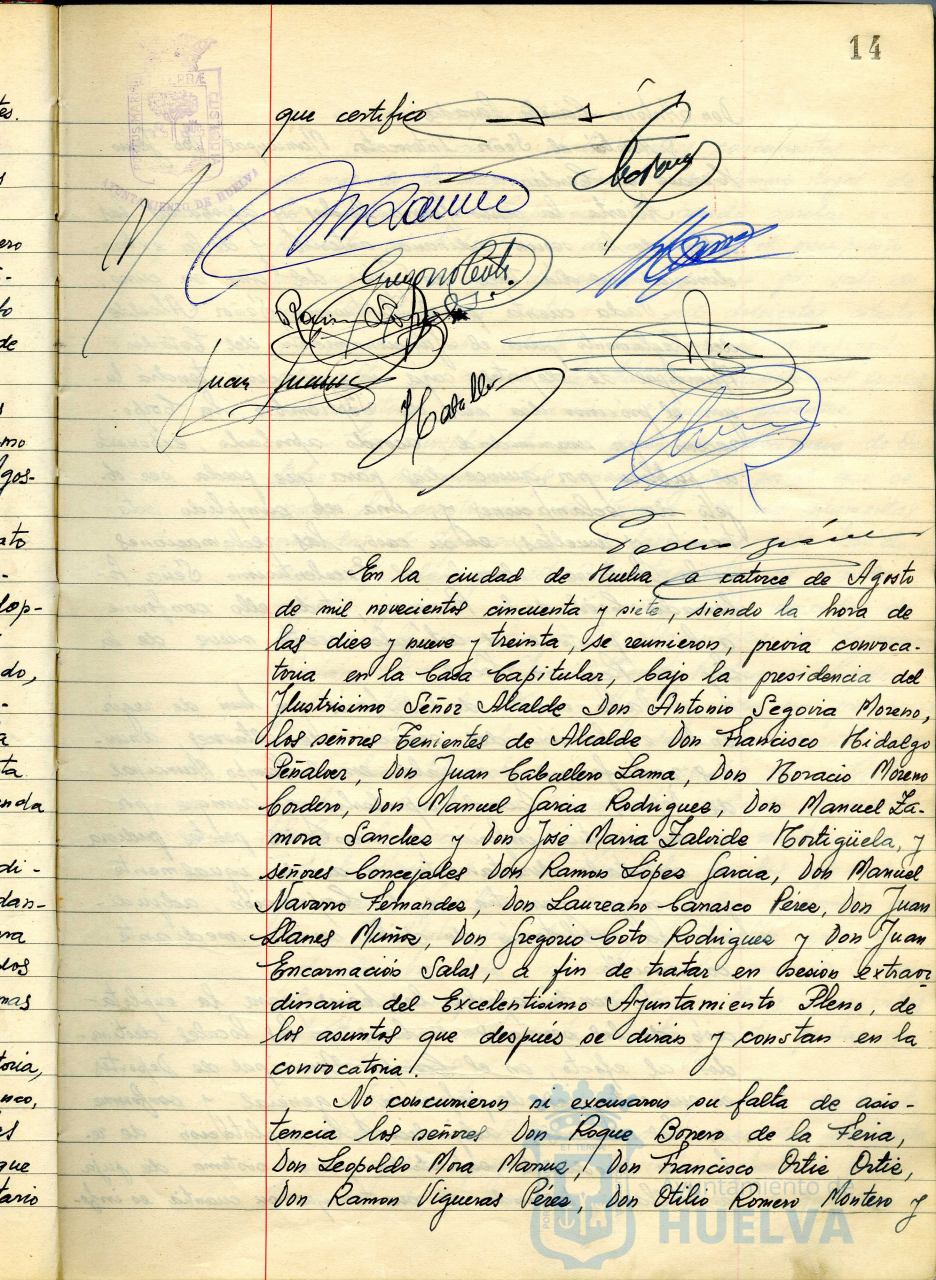 14
que certifico
Gregorio Coto.
Juan Llanes
HCaballero
En la ciudad de Huelva a catorce de Agosto
de mil novecientos cincuenta y siete, siendo la hora de
las diez y nueve y treinta, se reunieron, previa convoca-
toria en la Casa Capitular, bajo la presidencia del
Ilustrisimo Señor Alcalde Don Antonio Segovia Moreno,
los señores Tenientes de Alcalde Don Francisco Hidalgo
Peñalver, Don Juan Caballero Lama, Don Horacio Moreno
Cordero, Don Manuel Garcia Rodriguez, Don Manuel Za-
mora Sanchez y Don José Maria Zalvide Hortigüela, y
señores Concejales Don Ramon López Garcia, Don Manuel
Navarro Fernandez, Don Laureano Carrasco Pérez, Don Juan
Llanes Muñoz, Don Gregorio Coto Rodriguez y Don Juan
Encarnación Salas, a fin de tratar en sesion extraor
dinaria del Excelentisimo Ayuntamiento Pleno, de
los asuntos que después se dirán y constan en la
convocatoria.
No concurrieron ni excusaron su falta de asis-
tencia los señores Don Roque Borrero de la Feria,
Don Leopoldo Mora Manuz, Don Francisco Ortiz Ortiz,
Don Ramon Vigueras Pérez, Don Otilio Romero Montero y
AYUNTAMIENTO DE HUELVA
Ayuntamiento de
HUELVA